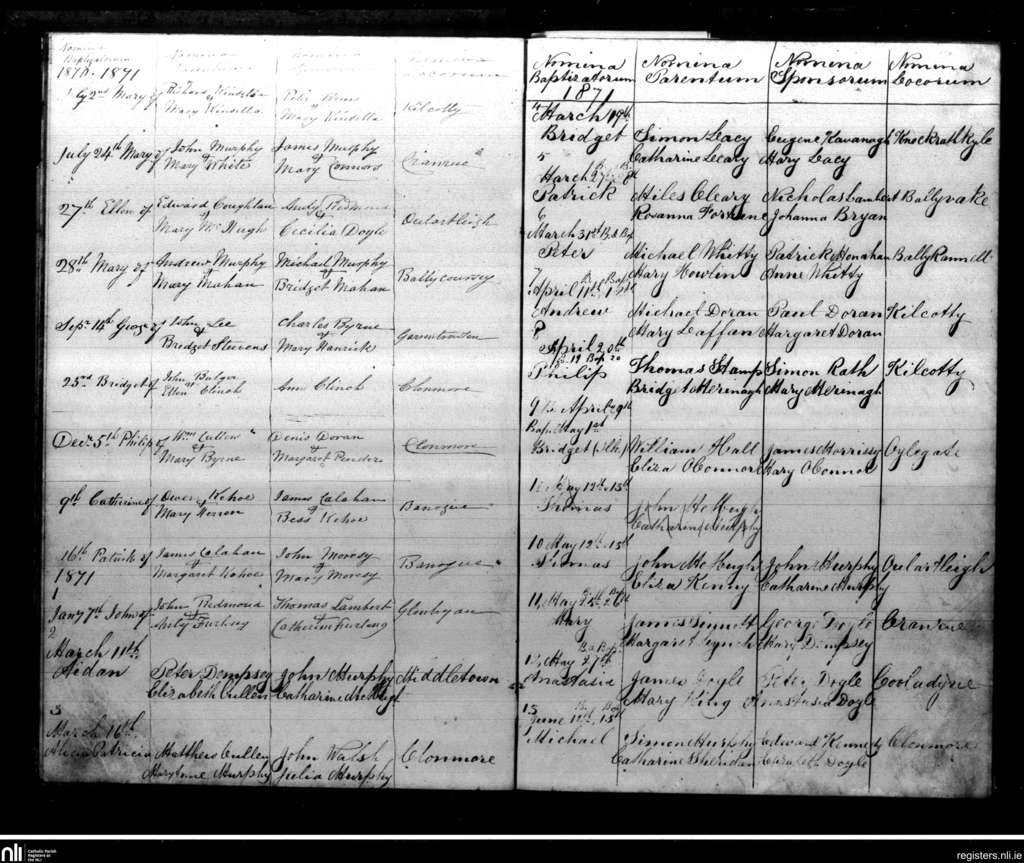 Nomina Nomina Nomina Nomina
Baptizatorum Locorum
1870-1871
2nd Mary of Richard Kinsella Peter Kilcotty
Mary Kinsella Mary Kinsella
July 24th Mary of John Murphy James Murphy Cranrue
& Mary White & Mary Connors
27th Ellen of Edward Coughlan Andy Redmond Oulartleigh
Mary McHugh & Cecilia Doyle
28th Mary of Andrew Murphy Michael Murphy Ballycoursey
& Mary Mahan & Bridget Mahan
Sepr 14th George of John Lee Charles Byrne
& Bridget Stevens & Mary Hanrick
25th Bridget of John Bulger Ann Clinch Clonmore
Ellen Clinch
Decr 5th Philip of Wm Cullen Denis Doran Clonmore
& Mary Byrne & Margaret
9th Catherine of Owen Kehoe James Calahan Banogue
& Mary Herron & Bess Kehoe
16th Patrick of James Calahan John Moresy Banogue
& Margaret Kehoe & Mary Moresy
1871
1
Jany 7th John of John Redmond Thomas Lambert
& Anty Furlong & Catherine Furlong
2
March 11th
Aidan Peter Dempsey John Murphy Middletown
Elizabeth Cullen Catharine McHugh
3
March 16th
Alicia Patricia Matthew Cullen John Walsh Clonmore
Maryanne Murphy Julia Murphy
Nomina Nomina Nomina Nomina
Baptizatorum Parentum Sponsorum Locorum
1871
4 March 19th
Bridget Simon Leacy Eugene Kavanagh Knockrathkyle
Catharine Leary Mary Lacy
5
March 27
Patrick Miles Cleary Nicholas Lambert Ballyvake
Rosanna Johanna Bryan
6
March 31st B & Bap
Peter Michael Whitty Patrick Monahan
Mary Howlin Anne Whitty
7
April 11th
Andrew Michael Doran Paul Doran Kilcotty
Mary Laffan Margaret Doran
8
April 20th
B. 19 Bap 20
Philip Thomas Stamp Simon Rath Kilcotty
Bridget Merinagh Mary Merinagh
9 B. April 29th
Bap May 1st
Bridget William Hall James Morrissy Oylegate
Eliza OConnor Mary OConnor
10 May 12th 15th
Thomas John McHugh
Catharine Murphy
10 May 12th 15th
Thomas John McHugh John Murphy Oulartleigh
Eliza Kenny Catharine Murphy
11 May 25th 26th
Mary James Sinnott George Doyle Cranrue
Margaret Lynch Mary Dempsey
Bo Bap
12 May 27th
Anastasia James Doyle Peter Doyle Cooladyne
Mary King Anastasia Doyle
13
June 11th 15th
Michael Simon Murphy Edward Kennedy Clonmore
Catharine Sheridan Elizabeth Doyle
nli Catholic Parish
Registers at
the NLI
registers.nli.ie